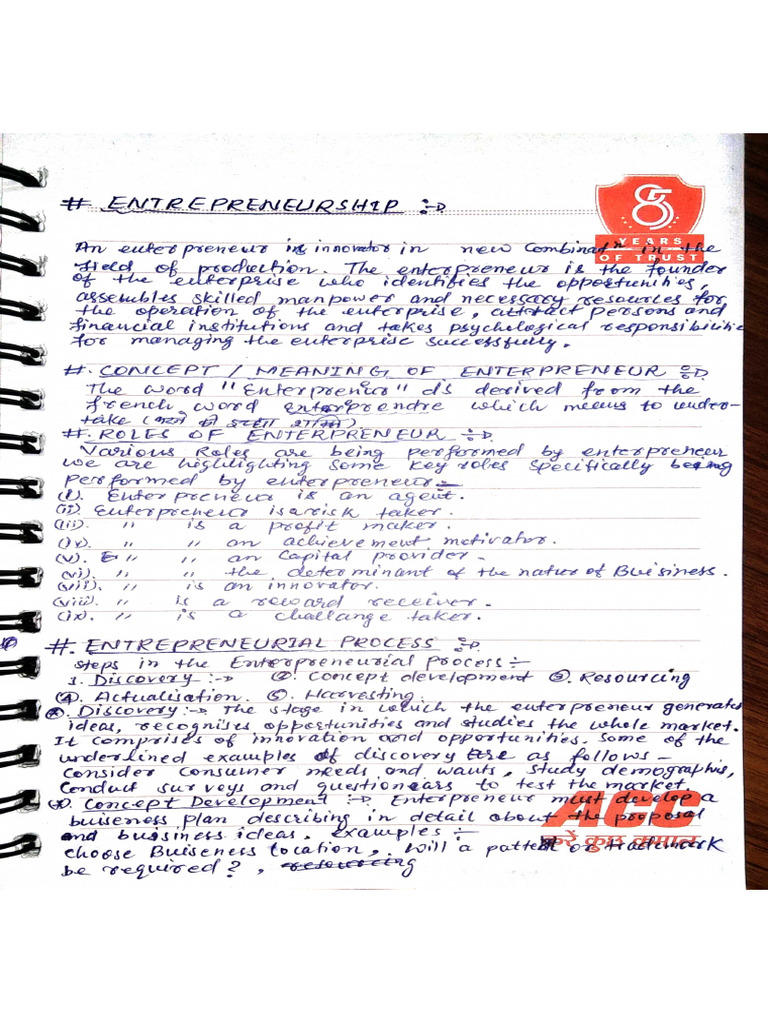 # ENTREPRENEURSHIP :-
85
YEARS
OF TRUST
An enterpreneur is innovator in new Combinatn in the
field of production. The enterpreneur is the founder
of the enterprise who identifies the opportunities,
assembles skilled manpower and necessary resources for
the operation of the enterprise, attract persons and
financial institutions and takes psychological responsibilitie
for managing the enterprise successfully.
#. CONCEPT / MEANING OF ENTERPRENEUR :-
The word "Enterpreneur" Is derived from the
french word enterprendre which means to under-
take (
#. ROLES OF ENTERPRENEUR :-
Various Roles are being performed by enterpreneur
we are highlighting some key roles specifically being
performed by enterpreneur:-
(i). Enterpreneur is an agent.
(ii) Enterpreneur is a risk taker.
(iii). " is a profit maker.
(iv). " " an achievement motivator.
(v). " " an Capital provider.
(vi) " " the determinant of the nature of Buisiness.
(vii). " is an innovator.
(viii). " is a reward receiver.
(ix). " is a challange taker.
#. ENTREPRENEURIAL PROCESS :-
Steps in the Enterpreneurial Process :-
1. Discovery :-> ②. Concept development ③. Resourcing
④. Actualisation. ⑤. Harvesting.
Discovery :-> The stage in which the enterpreneur generates
ideas, recognises opportunities and studies the whole market.
It comprises of innovation and opportunities. Some of the
underlined examples of discovery are as follows -
Consider Consumer needs and wants, study demographis,
Conduct surveys and questionears to test the market.
Concept Development :-> Enterpreneur must develop a
buiseness plan describing in detail about the proposal
and buisiness ideas. examples :-
choose Buiseness location, Will a patten or trademark
be required? , resourcing
ACC
करें कुछ कमाल